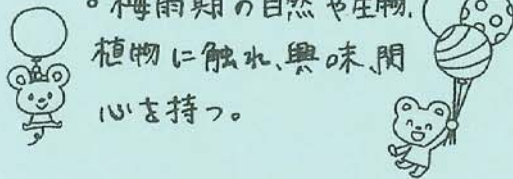 。梅雨期の自然や生物、
植物に触れ、興味、関
心を持つ。